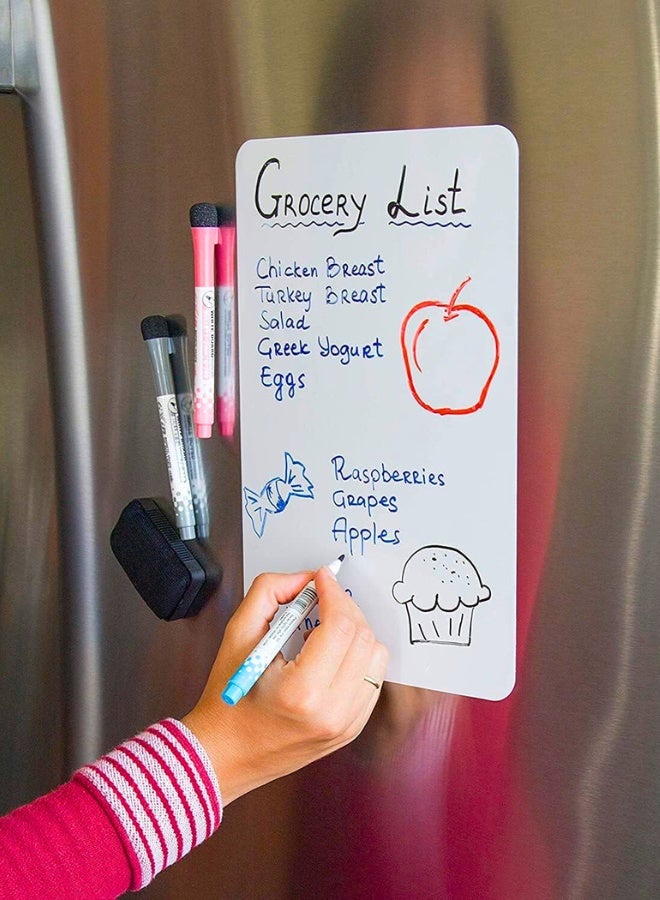 Grocery List
Chicken Breast
Turkey Breast
Salad
Greek Yogurt
Eggs
Raspberries
Grapes
Apples